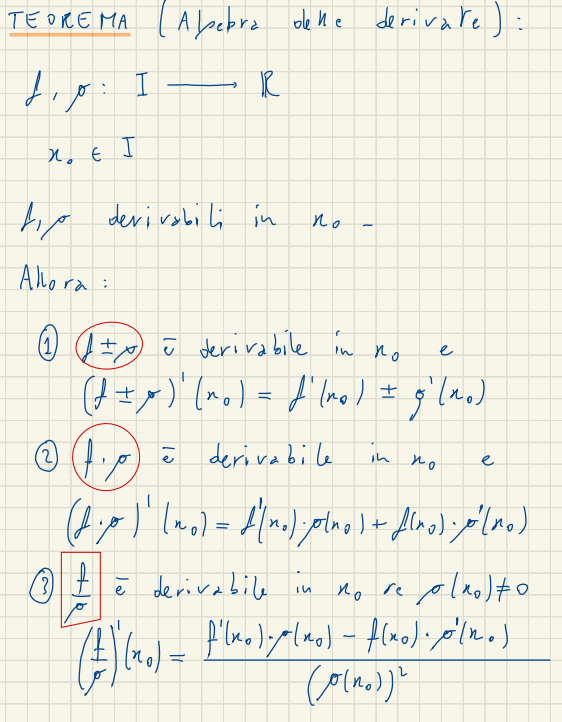 TEOREMA (Algebra delle derivate):
f, g: I → ℝ
x₀ ∈ I
f, g derivabili in x₀ -
Allora:
① f ± g è derivabile in x₀ e
(f ± g)'(x₀) = f'(x₀) ± g'(x₀)
② f · g è derivabile in x₀ e
(f · g)'(x₀) = f'(x₀) · g(x₀) + f(x₀) · g'(x₀)
③ f/g è derivabile in x₀ se g(x₀) ≠ 0
(f/g)'(x₀) = (f'(x₀) · g(x₀) − f(x₀) · g'(x₀)) / (g(x₀))²